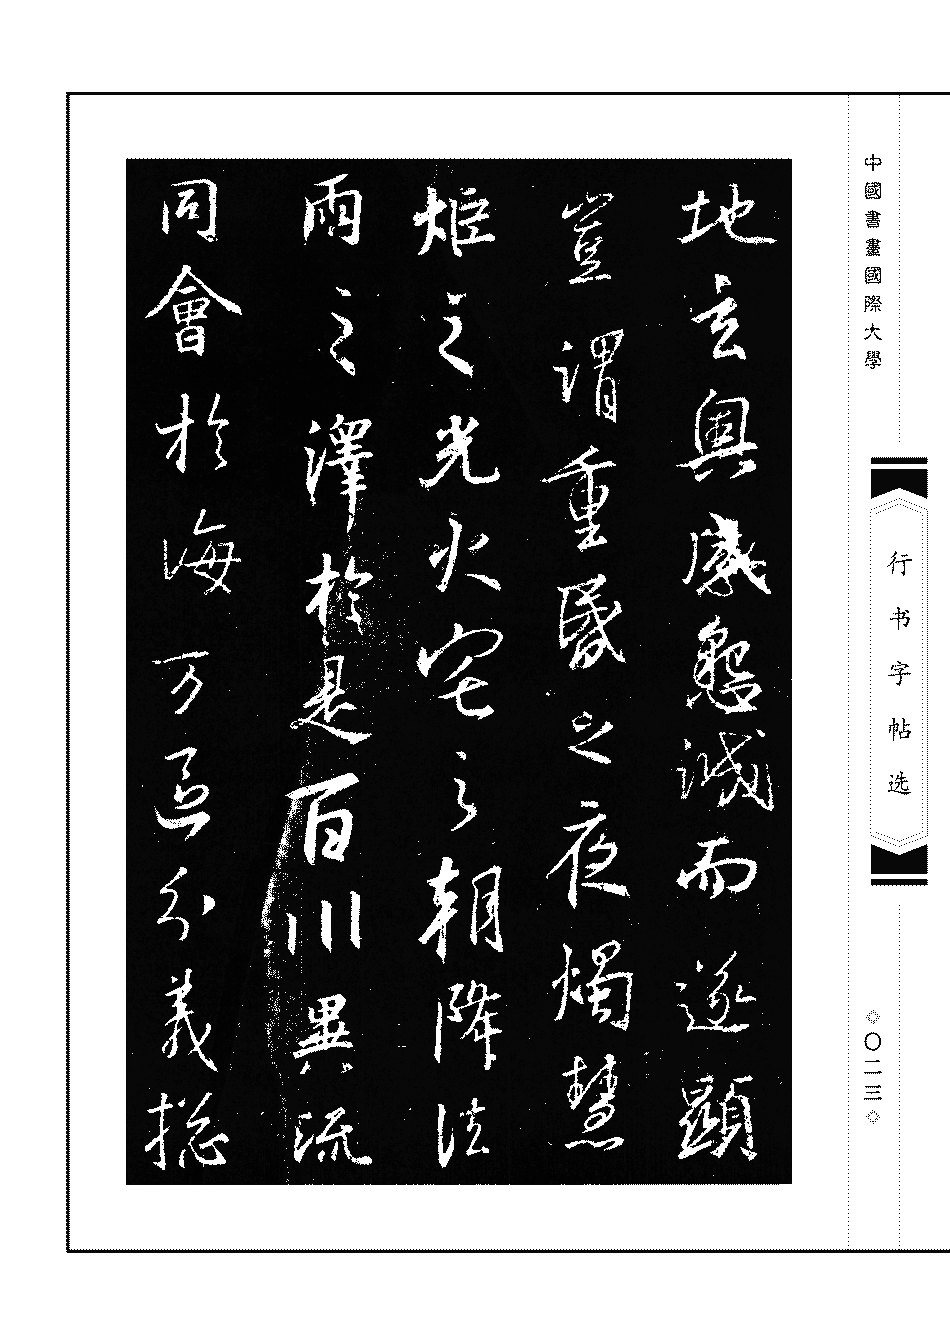 中國書畫國際大學
行书字帖选
〇二三
地玄奧感懇誠而遂顯
豈謂重昏之夜燭慧
炬之光火宅之朝降法
雨之澤於是百川異流
同會於海万區分義揔